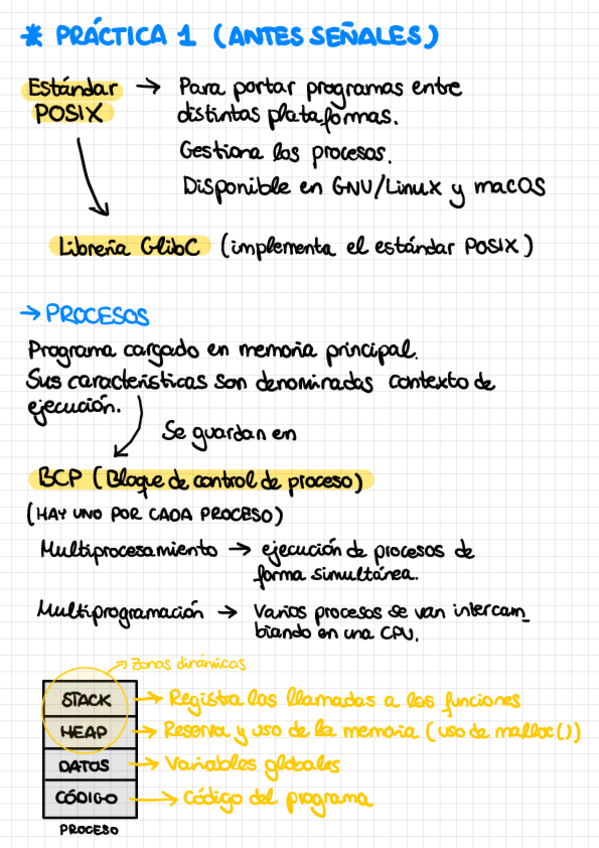 * PRÁCTICA 1 (ANTES SEÑALES)
Estándar POSIX → Para portar programas entre
distintas plataformas.
Gestiona los procesos.
Disponible en GNU/Linux y macOS
Librería GlibC (implementa el estándar POSIX)
→ PROCESOS
Programa cargado en memoria principal.
Sus características son denominadas contexto de
ejecución.
Se guardan en
BCP (Bloque de control de proceso)
(HAY UNO POR CADA PROCESO)
Multiprocesamiento → ejecución de procesos de
forma simultánea.
Multiprogramación → Varios procesos se van intercam_
biando en una CPU.
→ Zonas dinámicas
STACK → Registra las llamadas a las funciones
HEAP → Reserva y uso de la memoria (uso de malloc())
DATOS → Variables globales
CÓDIGO → Código del programa
PROCESO